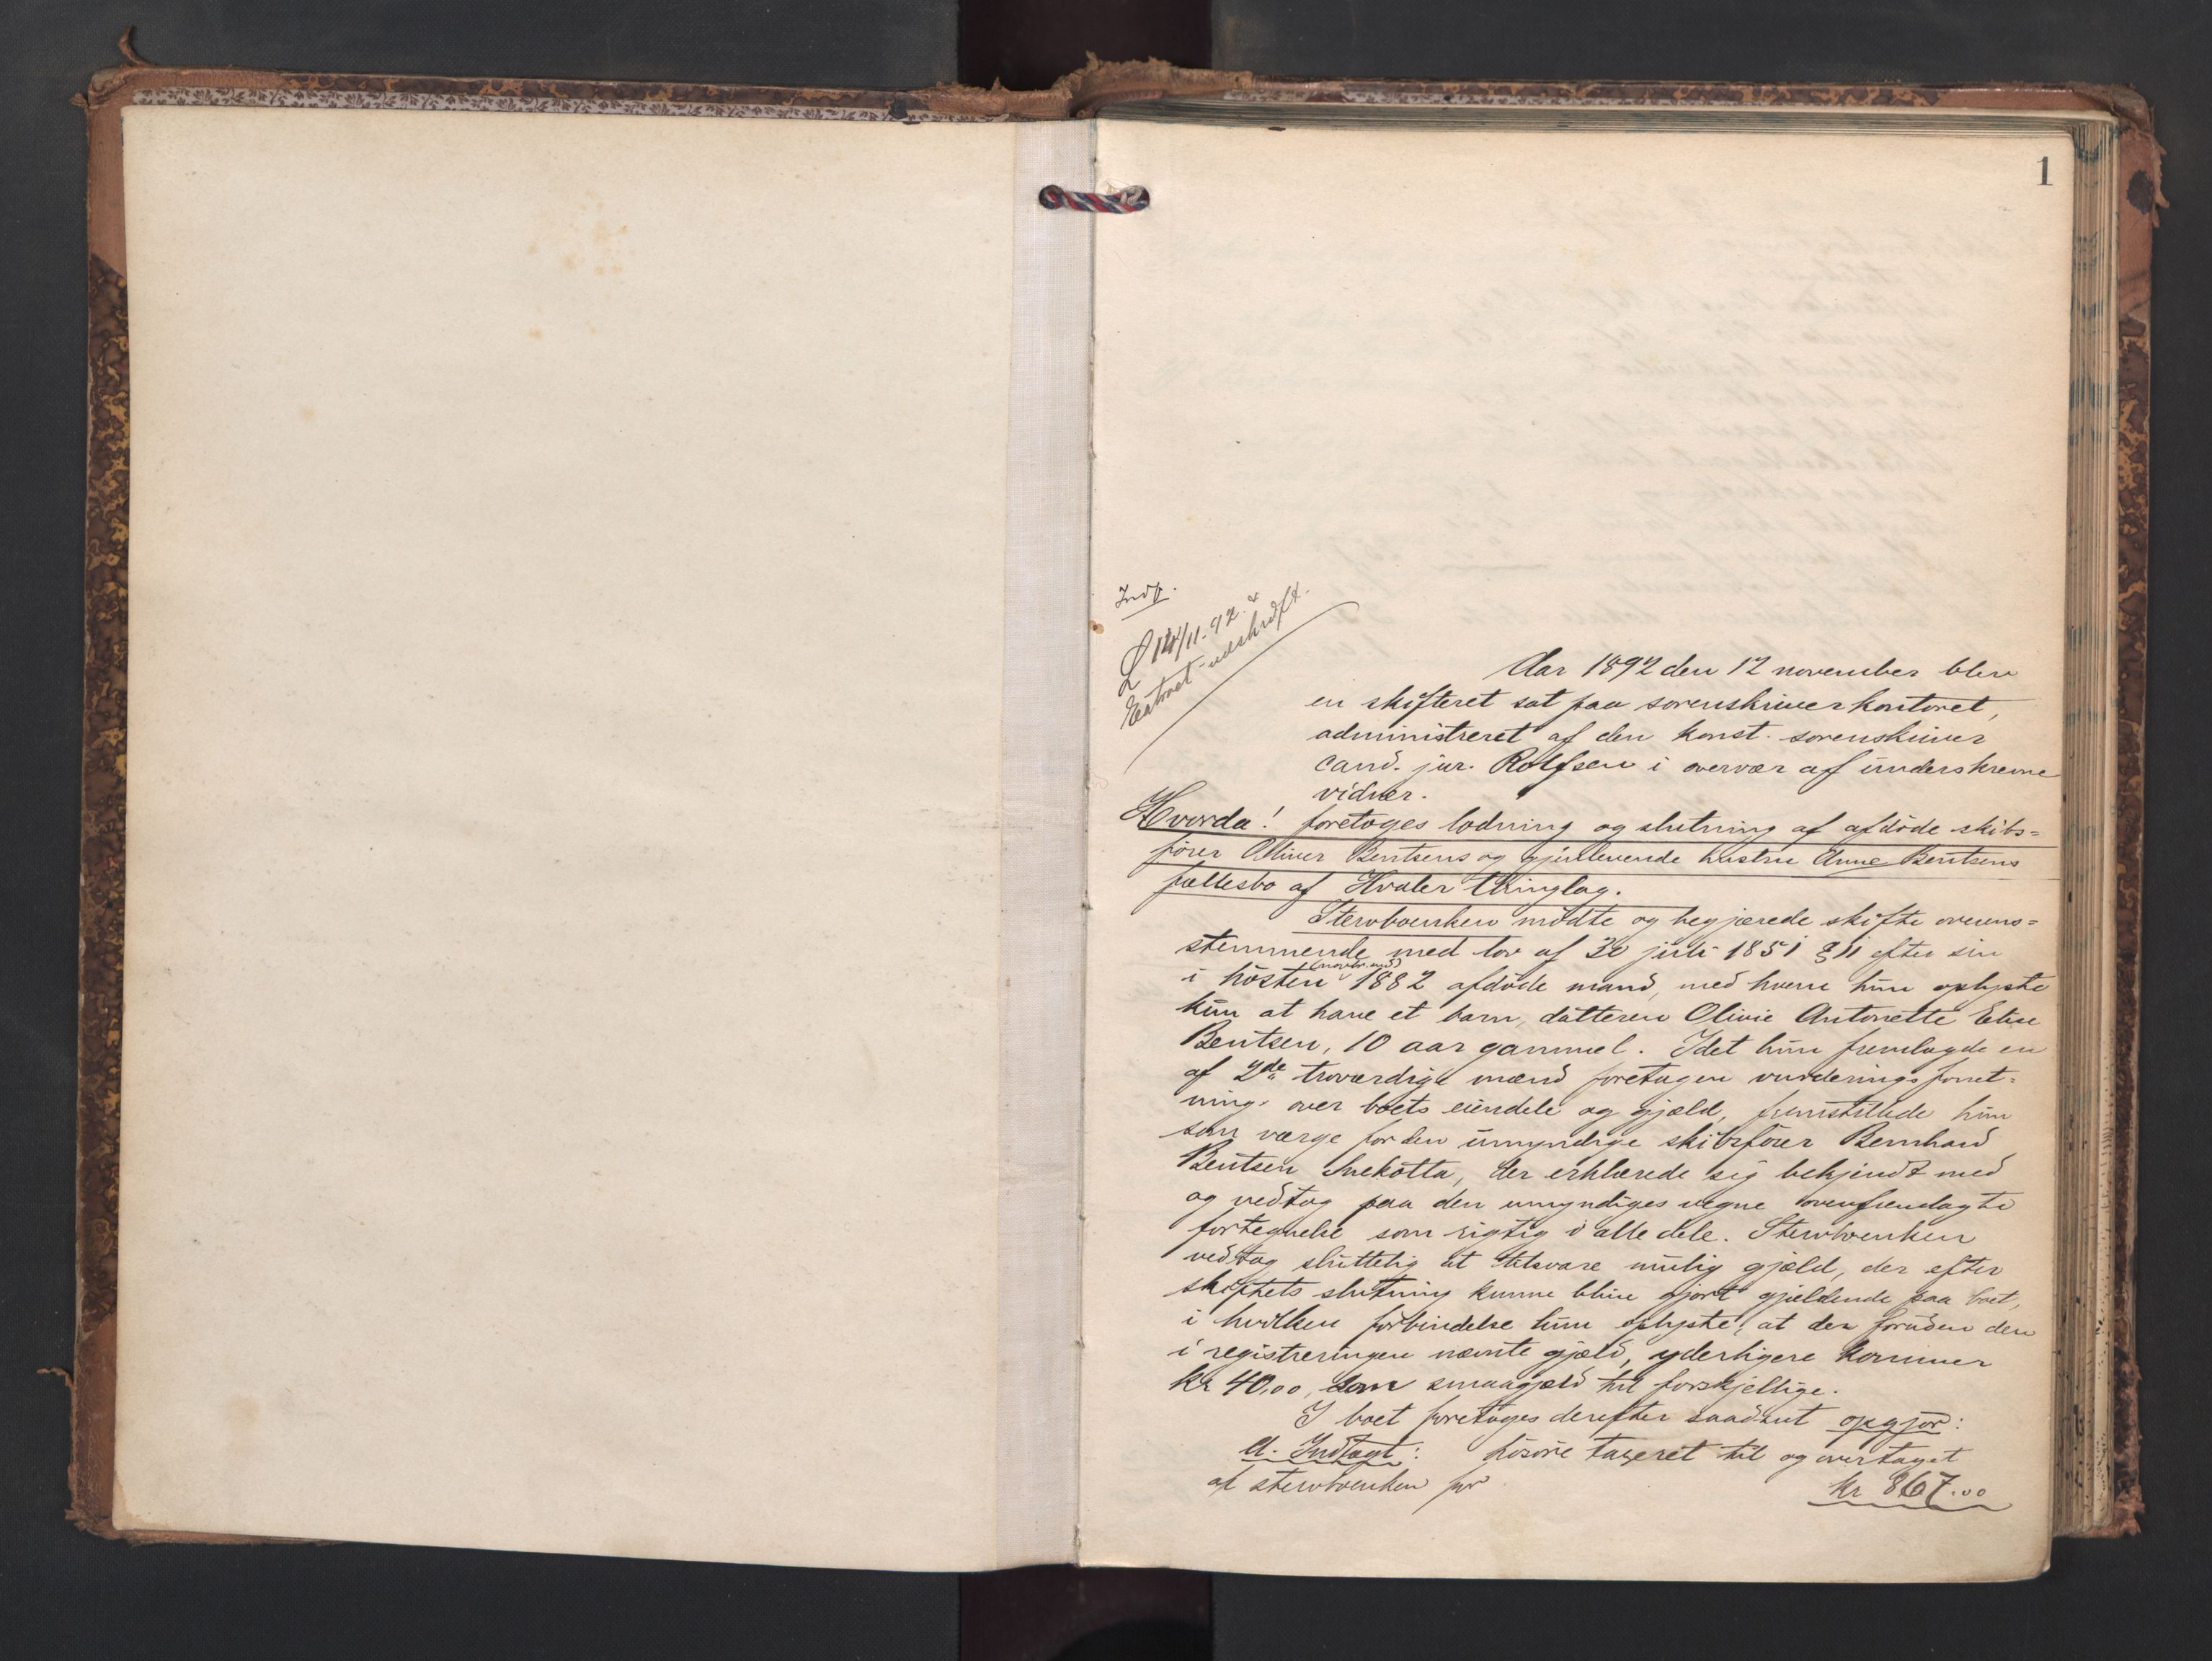 1
Indf.
14/11.92. &
udskrift.
Aar 1892 den 12 november blev
en skifteret sat paa sorenskriverkontoret,
administreret af den konst. sorenskriver
cand. jur. Rolfsen i overvær af underskrevne
vidner.
Hvorda! foretoges lodning og slutning af afdöde skibs=
fører Oliver Bentsens og gjenlevende hustru Anne Bentsens
fællesbo af Hvaler thinglag.
Stervboenken mödte og begjærede skifte overens=
stemmende med lov af 30 juli 1851 § 11 efter sin
i hösten (novbr. md) 1882 afdöde mand, med hvem hun oplyste
kun at have et barn, datteren Olivie Antonette Elise
Bentsen, 10 aar gammel. Idet hun fremlagde en
af 2de troværdige mænd foretagen vurderingsforret=
ning over boets eiendele og gjæld, fremstillede hun
som værge for den umyndige skibsfører Bernhard
Bentsen, der erklærede sig bekjendt med
og vedtog paa den umyndiges vegne ovenfremlagte
fortegnelse som rigtig i alle dele. Stervboenken
vedtog sluttelig at tilsvare mulig gjæld, der efter
skiftets slutning kunne blive gjort gjældende paa boet,
i hvilken forbindelse hun oplyste, at der foruden den
i registreringen nævnte gjæld, yderligere kommer
kr 40,00, som smaagjæld til forskjellige.
I boet foretoges derefter saadant opgjør:
A. Indtægt: lösöre taxeret til og overtaget
af stervboenken for kr 867.00